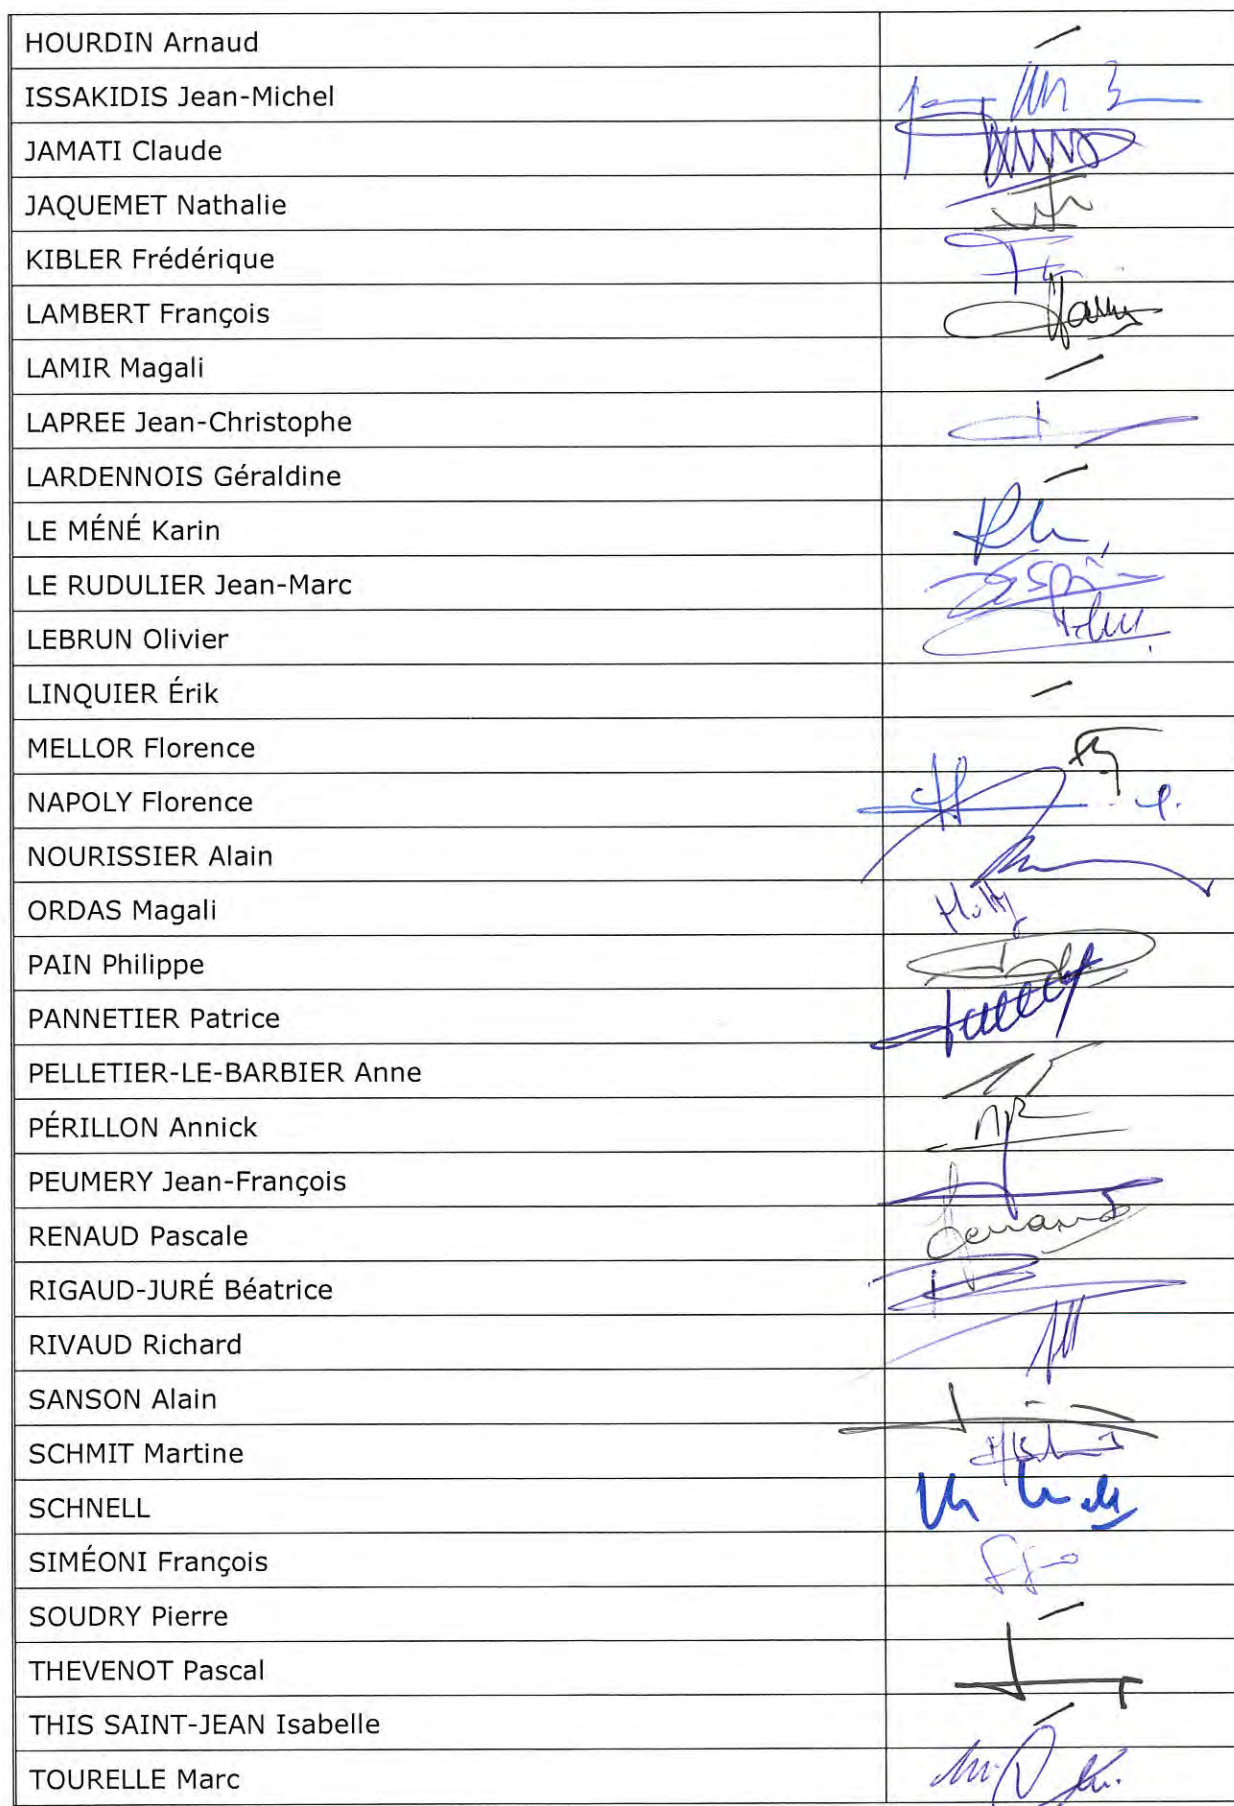 HOURDIN Arnaud
ISSAKIDIS Jean-Michel
JAMATI Claude
JAQUEMET Nathalie
KIBLER Frédérique
LAMBERT François
LAMIR Magali
LAPREE Jean-Christophe
LARDENNOIS Géraldine
LE MÉNÉ Karin
LE RUDULIER Jean-Marc
LEBRUN Olivier
LINQUIER Érik
MELLOR Florence
NAPOLY Florence
NOURISSIER Alain
ORDAS Magali
PAIN Philippe
PANNETIER Patrice
PELLETIER-LE-BARBIER Anne
PÉRILLON Annick
PEUMERY Jean-François
RENAUD Pascale
RIGAUD-JURÉ Béatrice
RIVAUD Richard
SANSON Alain
SCHMIT Martine
SCHNELL
SIMÉONI François
SOUDRY Pierre
THEVENOT Pascal
THIS SAINT-JEAN Isabelle
TOURELLE Marc